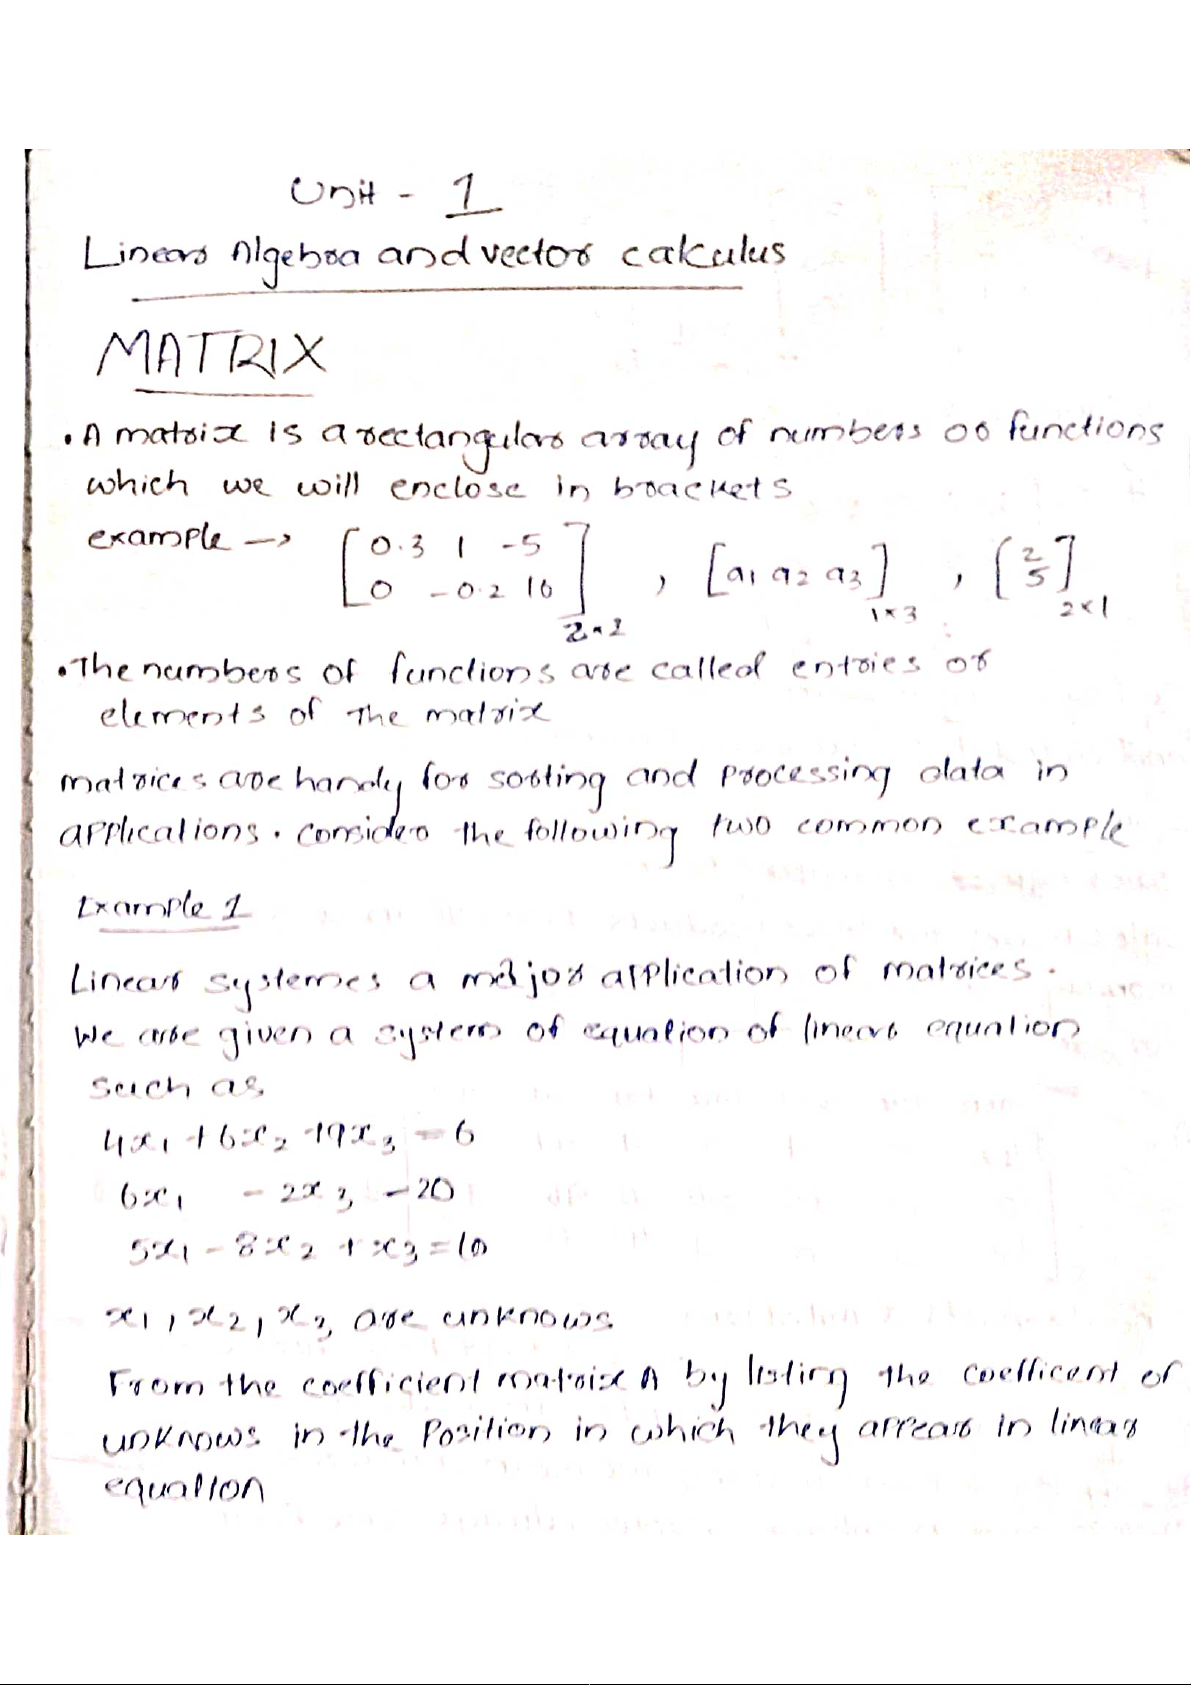 Unit - 1
Linear Algebra and vector calculus
MATRIX
• A matrix is a rectangular array of numbers or functions
which we will enclose in brackets
example → [0.3 1 -5
0 -0.2 16]2×2 , [a1 a2 a3]1×3 , [2
5]2×1
• The numbers of functions are called entries or
elements of the matrix
matrices are handy for sorting and processing data in
applications. consider the following two common example
Example 1
Linear systemes a major application of matrices.
We are given a system of equation of linear equation
such as
4x1 + 6x2 + 9x3 = 6
6x1 - 2x3 - 20
5x1 - 8x2 + x3 = 10
x1, x2, x3 are unknows
From the coefficient matrix A by listing the coefficent of
unknows in the Position in which they appear in linear
equation